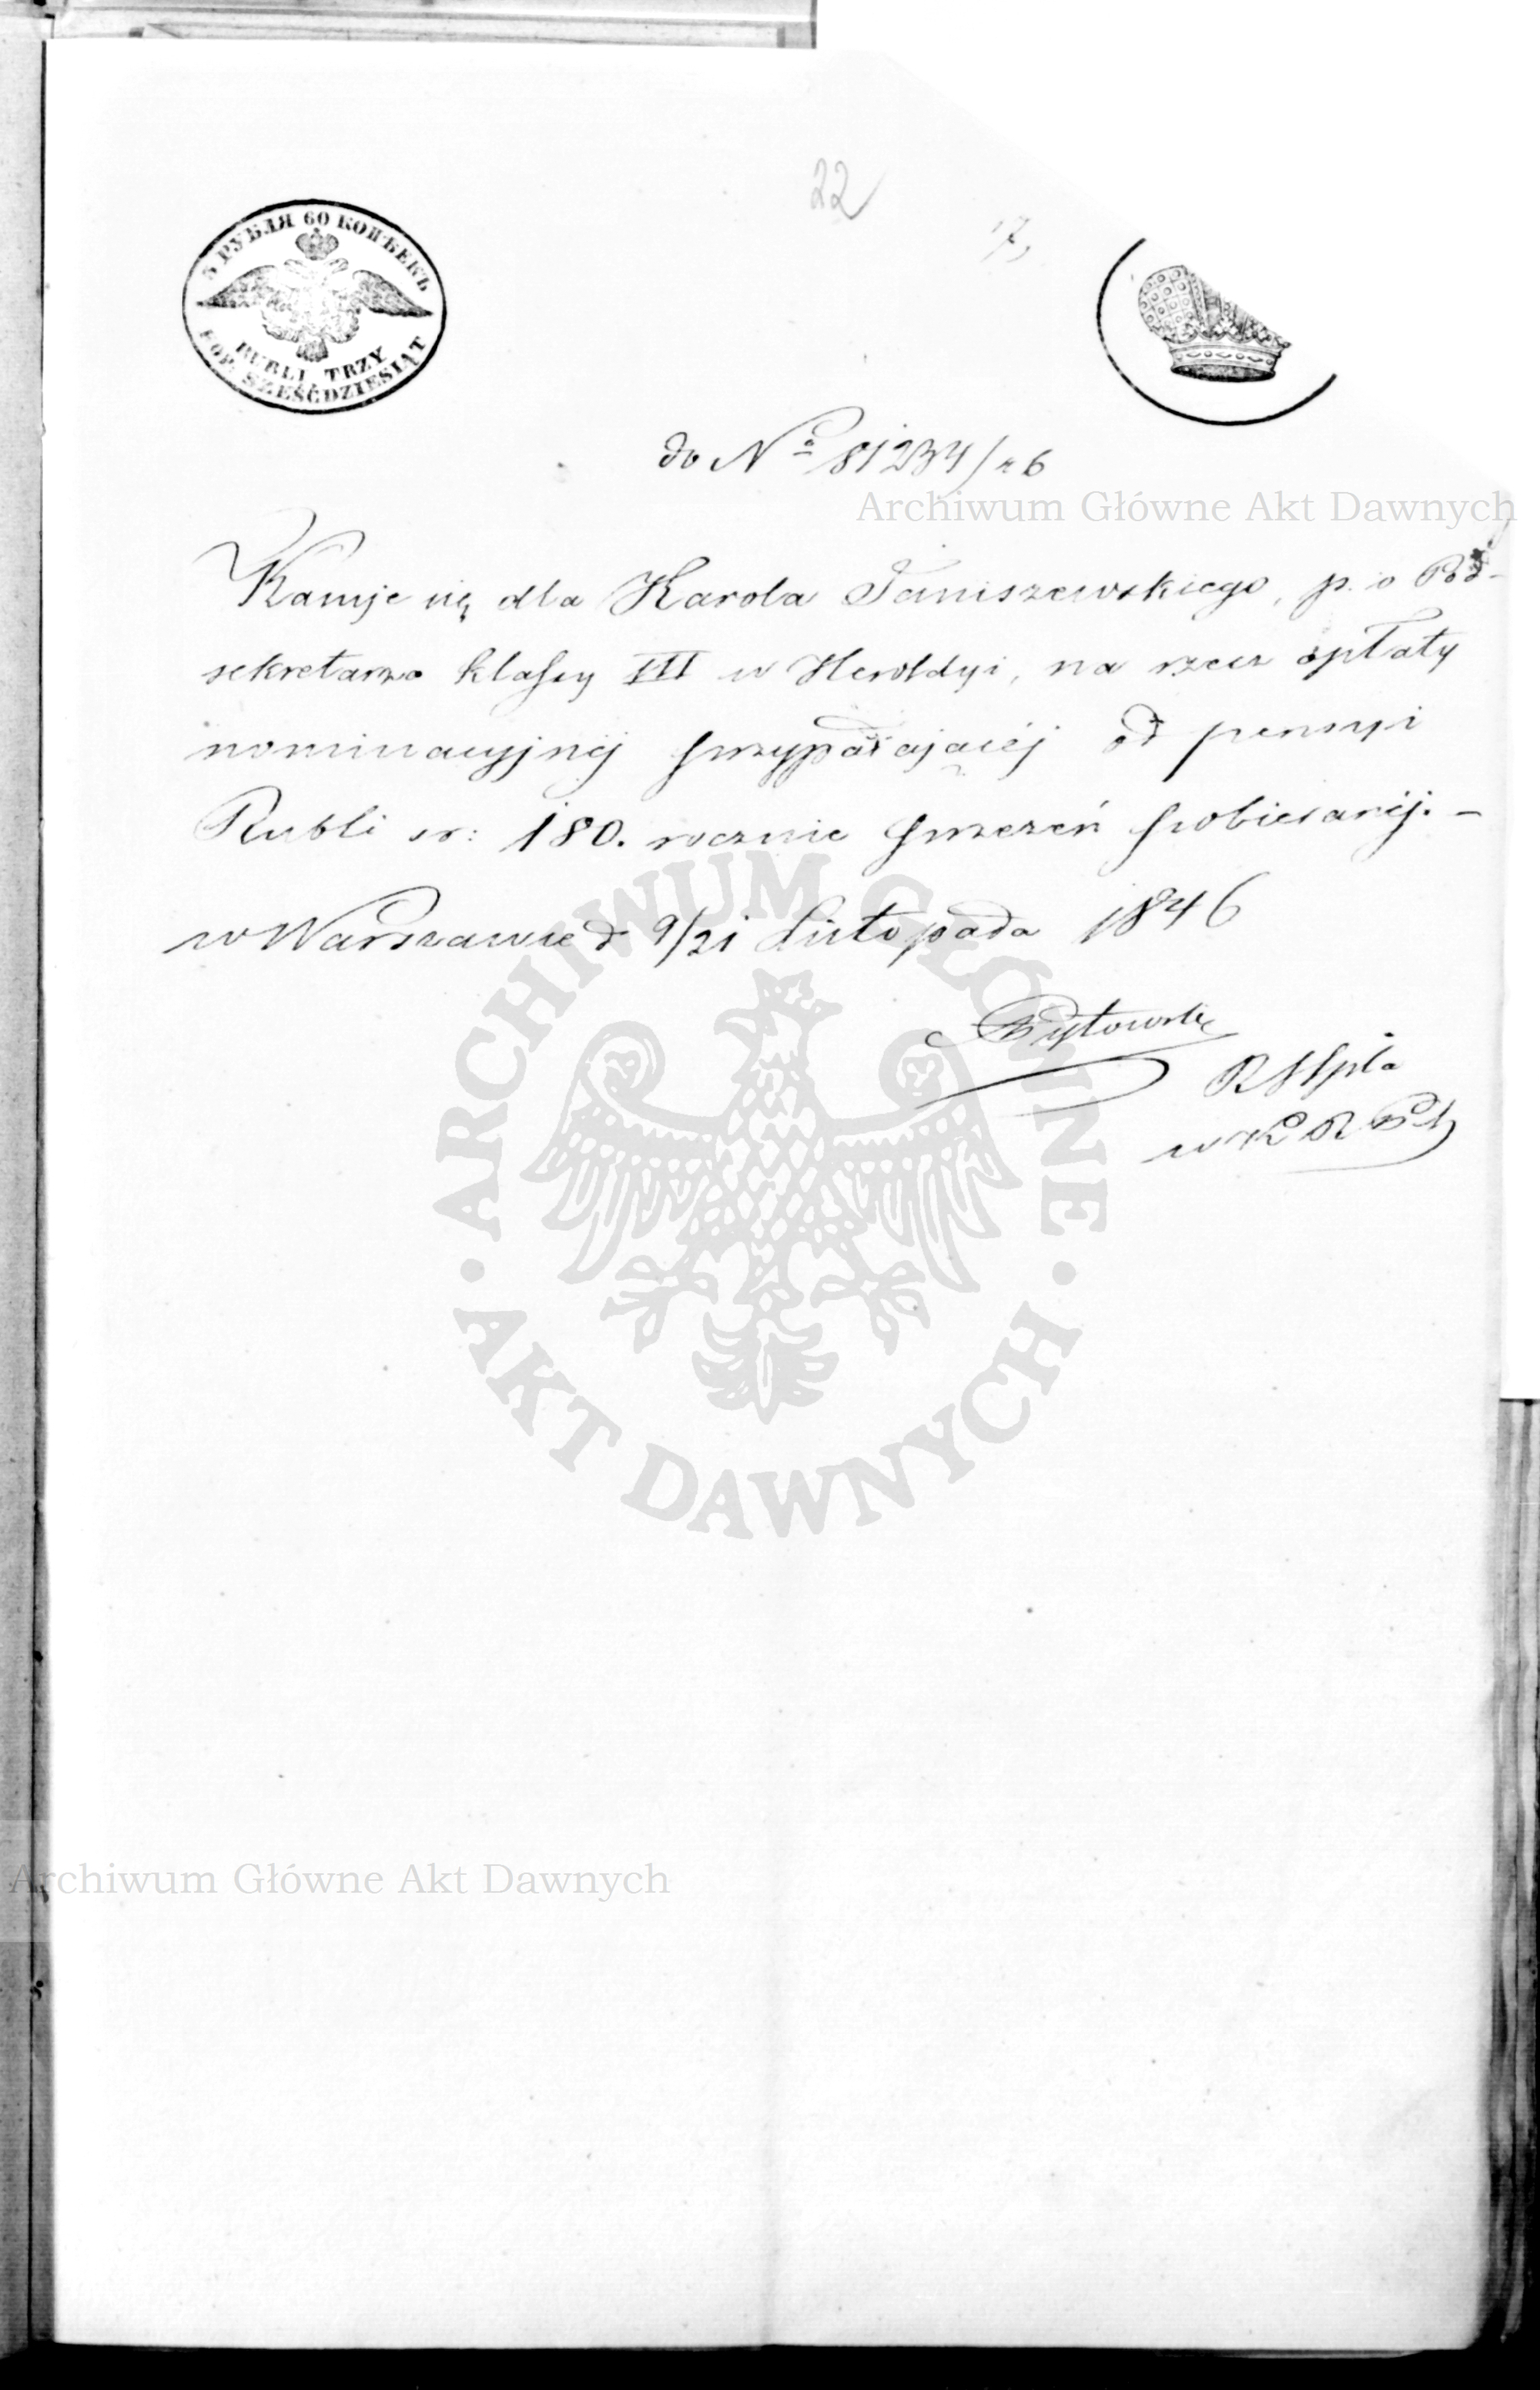 22
17,
3 РУБЛЯ 60 КОПѢЕКЪ
RUBLI TRZY
KOP. SZEŚĆDZIESIĄT
do No 81234/46
Archiwum Główne Akt Dawnych
Kasuje się dla Karola Janiszewskiego, p. o Pod-
sekretarza klassy III w Heroldyi, na rzecz opłaty
nominacyjnéj przypadającéj od pensyi
Rubli sr: 180. rocznie przezeń pobieranéj. –
w Warszawie d 9/21 Listopada 1846
ARCHIWUM GŁÓWNE
AKT DAWNYCH
Archiwum Główne Akt Dawnych